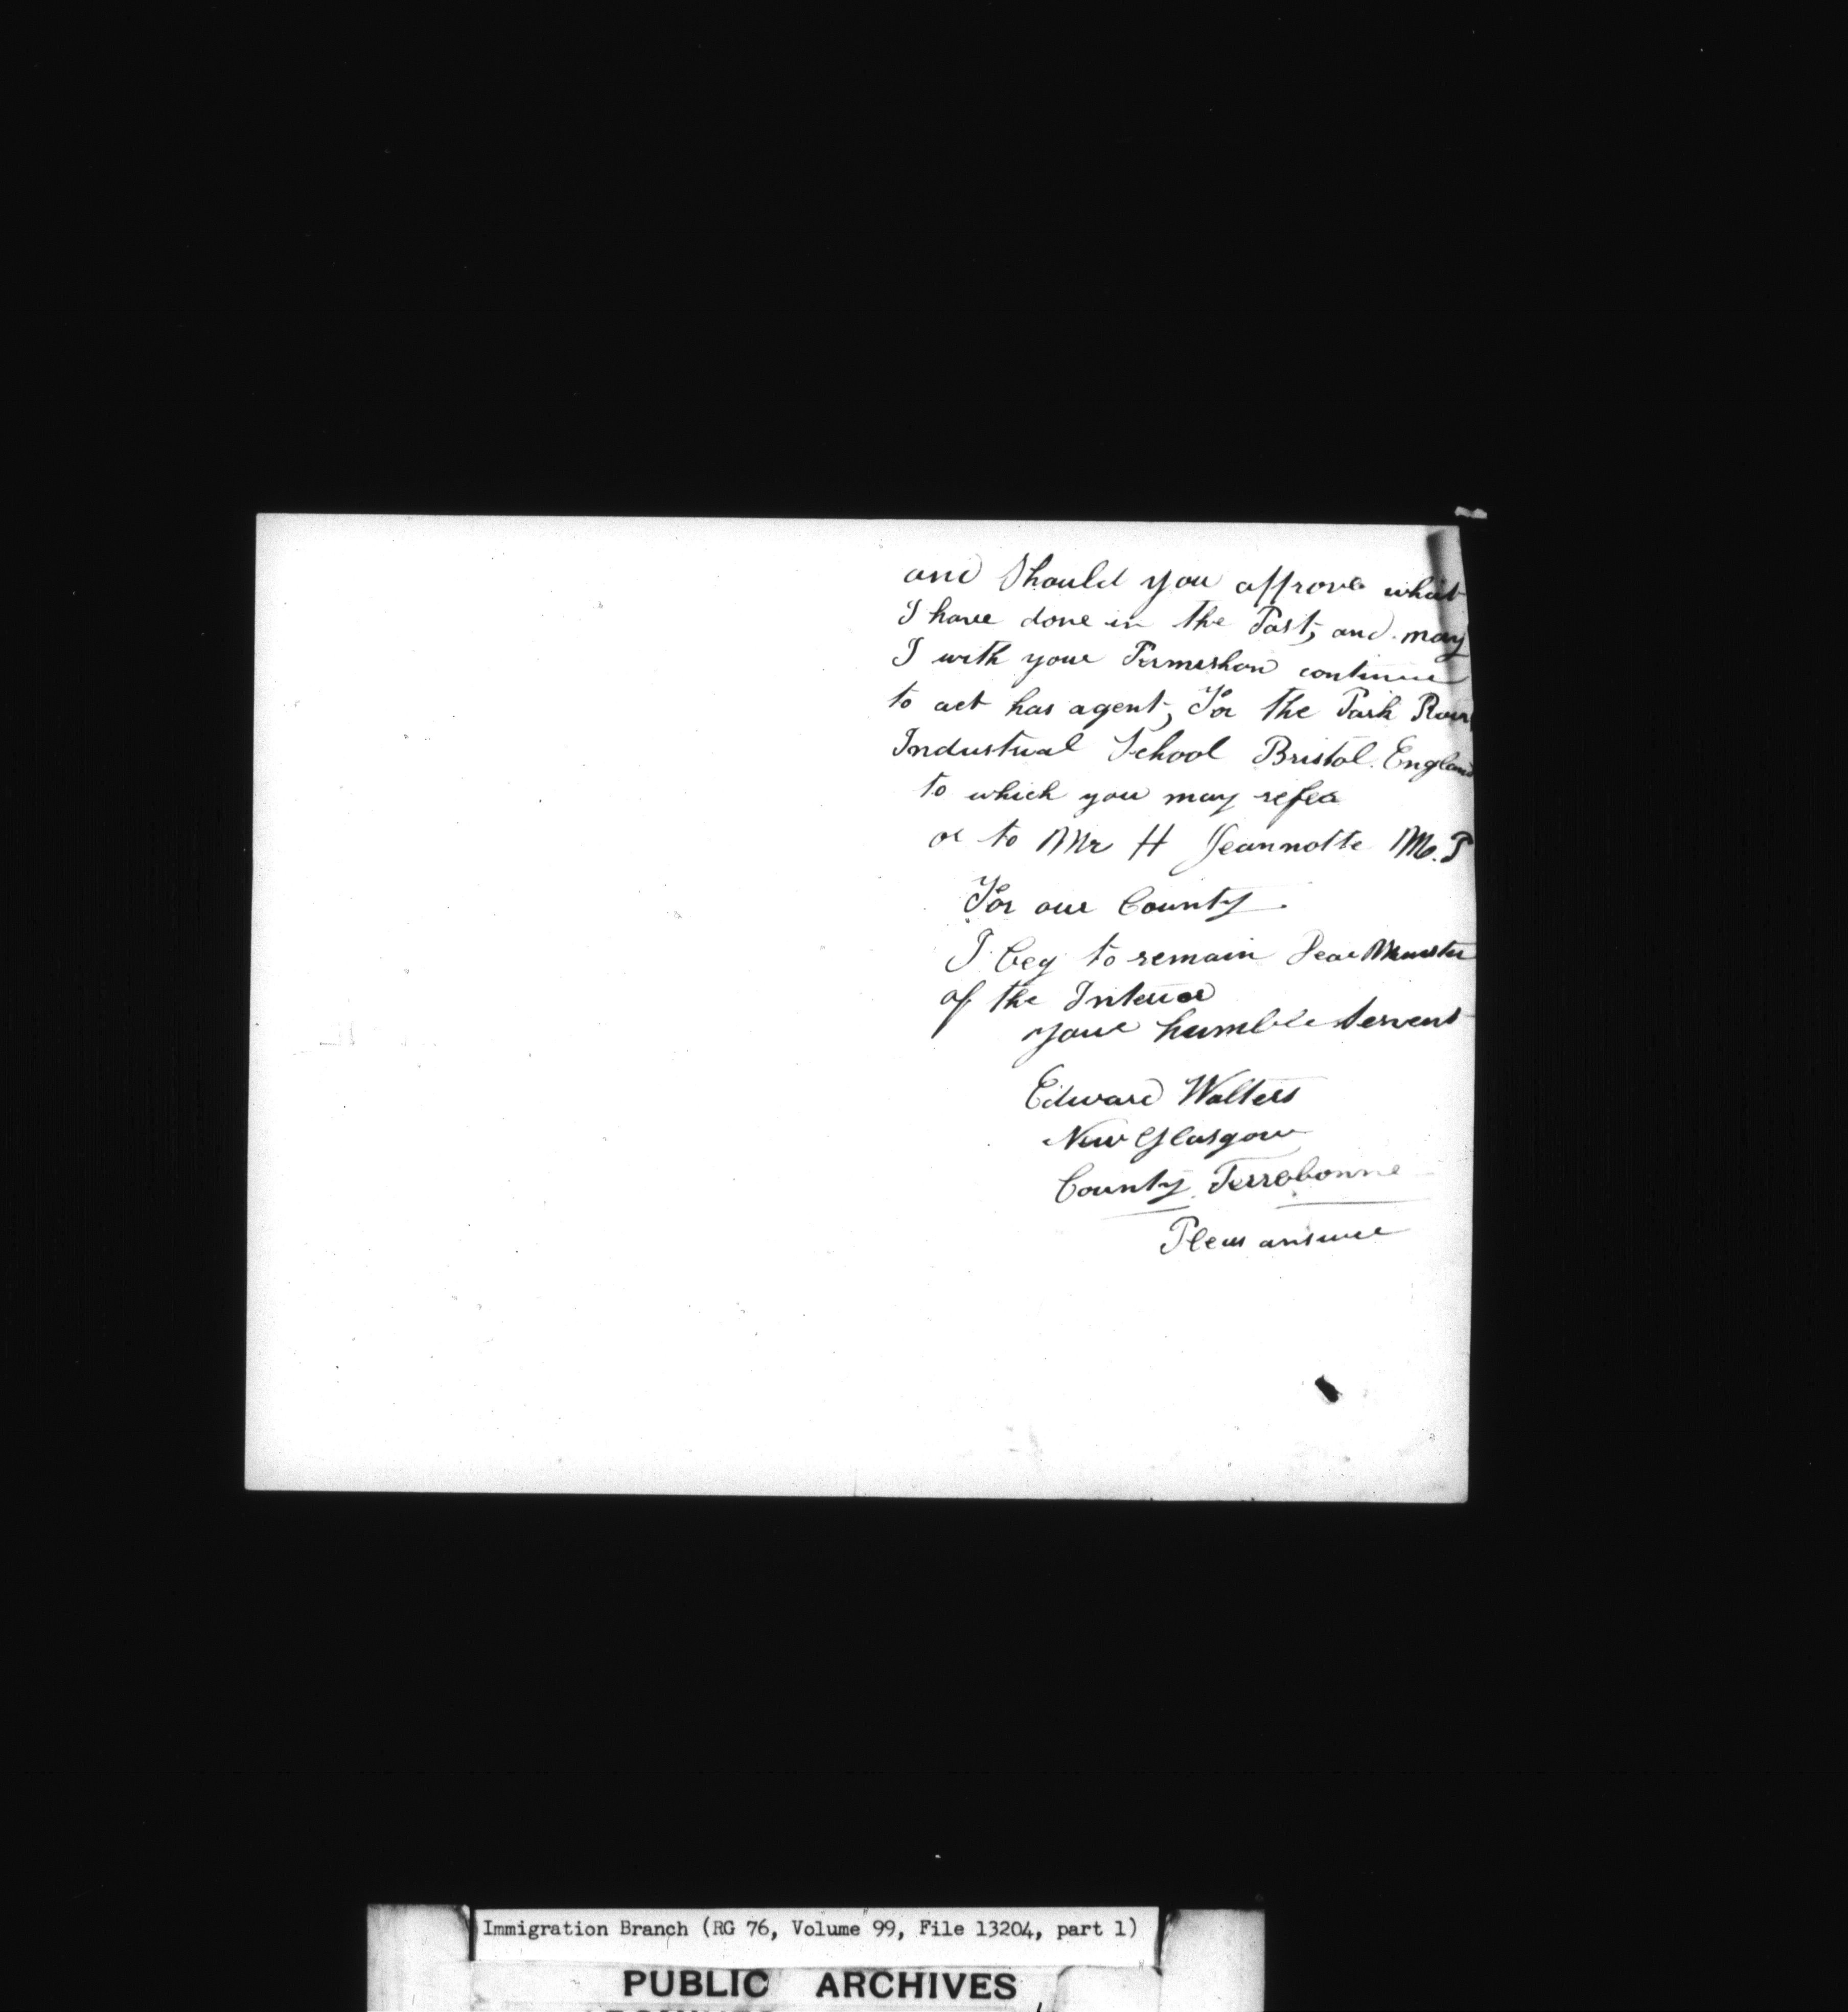 and Should you approve what
I have done in the Past, and may
I with your Permishon continue
to act has agent, For the Park Row
Industrial School Bristol. England
to which you may refer
or to Mr H Jeannotte M.P
For our County.
I beg to remain Dear Minister
of the Interior
your humble Servent
Edward Walters
New Glasgow
County Terrebonne
Pleas answer
Immigration Branch (RG 76, Volume 99, File 13204, part 1)
PUBLIC ARCHIVES